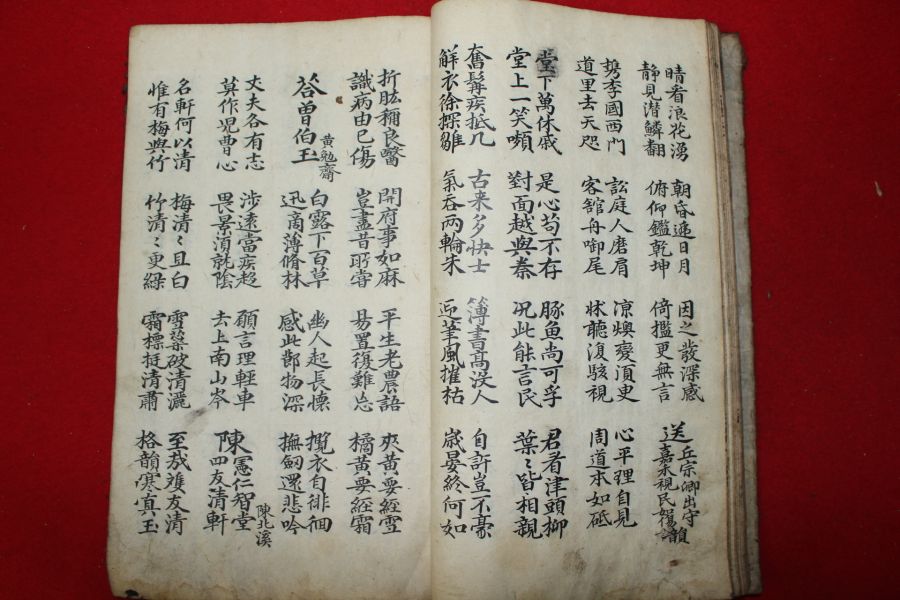 晴看浪花湧
静見潜鱗翻
朝昏遞日月
俯仰鑑乾坤
因之發深感
倚檻更無言
送丘宗卿出守
嘉禾視民如傷韻
携李國西門
道里去天咫
訟庭人磨肩
客舘舟啣尾
凉燠變湏臾
状聽復駭視
心平理自見
周道本如砥
堂下萬休戚
堂上一笑嚬
是心苟不存
對面越與秦
豚魚尚可孚
况此能言民
君看津頭柳
葉〻皆相親
奮髯疾抵几
鮮衣徐探雛
古来多快士
氣吞兩輪朱
簿書高没人
迎筆風摧枯
自許豈不豪
嵗晏終何如
折肱稱良醫
識病由已傷
開府事如麻
豈盡昔所嘗
平生老農語
易置復難忘
夾黄要經雪
橘黄要經霜
答曽伯玉 黄勉齋
白露下百草
迅商薄脩林
幽人起長懷
感此節物深
攬衣自徘徊
撫劒還悲吟
丈夫各有志
莫作児曹心
涉遠當疾趍
畏景湏就陰
願言理輕車
去上南山岑
陳憲仁智堂
四友清軒 陳北溪
名軒何以清
惟有梅與竹
梅清〻且白
竹清〻更緑
雪蘂破清灑
霜標挺清肅
至哉雙友清
格韻寒真玉